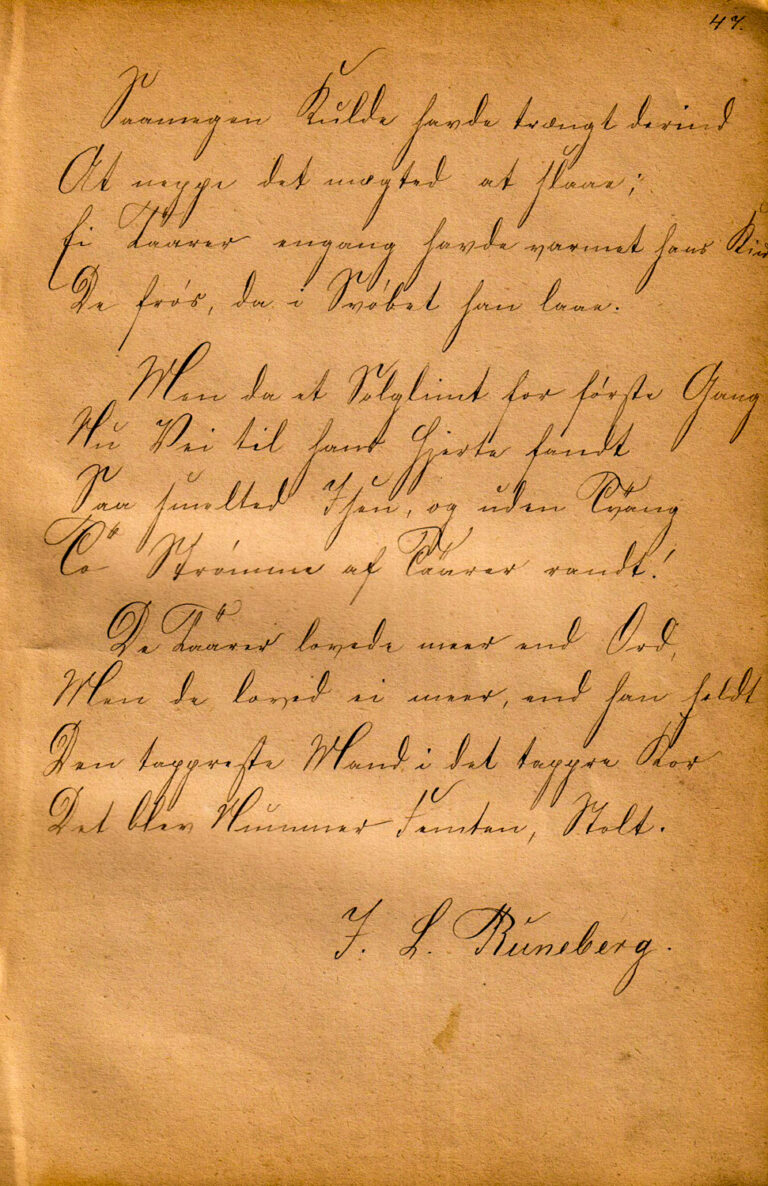 47.
Saamegen Kulde havde trængt derind
At neppe det mægted at slaae;
Ei Taarer engang havde varmet hans Kind
De frós, da i Svóbet han laae.
Men da et Solglimt for fórste Gang
Nu Vei til hans Hjerte fandt
Saa smelted Isen, og uden Tvang
To Strómme af Taarer randt!
De Taarer lovede meer end Ord,
Men de loved ei meer, end han holdt
Den tappreste Mand i det tappre Kor
Det blev Nummer Femten, Stolt.
J. L. Runeberg.